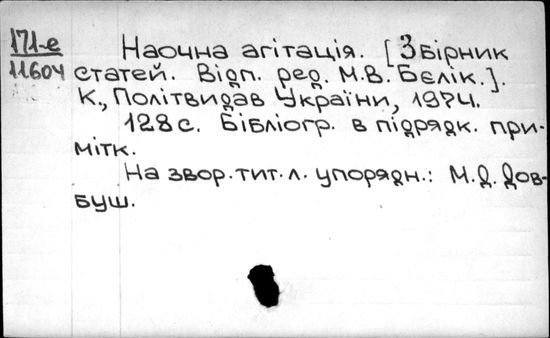 171-е
11604
Наочна агітація. [Збірник
статей. Відп. ред. М.В. Бєлік.].
К., Політвидав України, 1974.
128 с. Бібліогр. в підрядк. при-
мітк.
На звор. тит. л. упорядн.: М.Д. Дов-
буш.